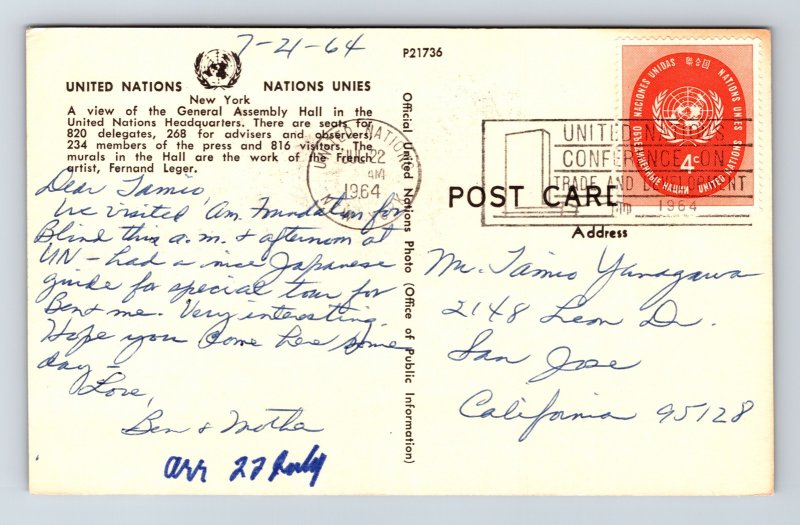 7-21-64
P21736
UNITED NATIONS NATIONS UNIES
New York
A view of the General Assembly Hall in the
United Nations Headquarters. There are seats for
820 delegates, 268 for advisers and observers,
234 members of the press and 816 visitors. The
murals in the Hall are the work of the French
artist, Fernand Leger.
Dear Tamio,
We visited Am. Foundation for
Blind this a.m. & afternoon at
UN - had a nice Japanese
guide for special tour for
Ben & me. Very interesting.
Hope you come here some
day -
Love,
Ben & Mother
arr 27 July
Official United Nations Photo (Office of Public Information)
UNITED NATIONS
JUL 22
AM
1964
N.Y.
UNITED NATIONS
CONFERENCE ON
TRADE AND DEVELOPMENT
1964
NACIONES UNIDAS
NATIONS UNIES
UNITED NATIONS
4c
POST CARD
Address
Mr. Tamio Yanagawa
2148 Leon Dr.
San Jose
California 95128